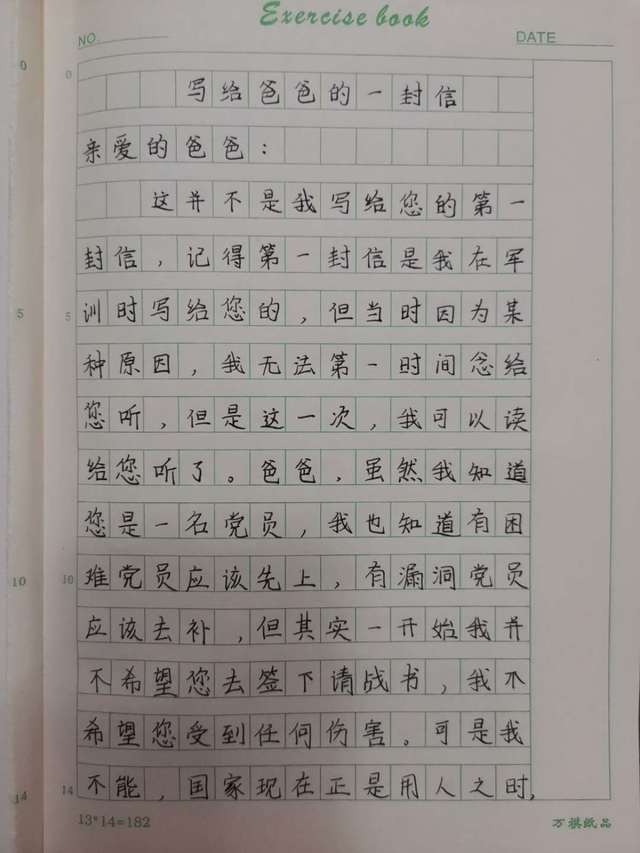 Exercise book
NO.
DATE
0
0
写给爸爸的一封信
亲爱的爸爸：
这并不是我写给您的第一
封信，记得第一封信是我在军
5
5
训时写给您的，但当时因为某
种原因，我无法第一时间念给
您听，但是这一次，我可以读
给您听了。爸爸，虽然我知道
您是一名党员，我也知道有困
10
10
难党员应该先上，有漏洞党员
应该去补，但其实一开始我并
不希望您去签下请战书，我不
希望您受到任何伤害。可是我
14
14
不能，国家现在正是用人之时，
13*14=182
万祺纸品